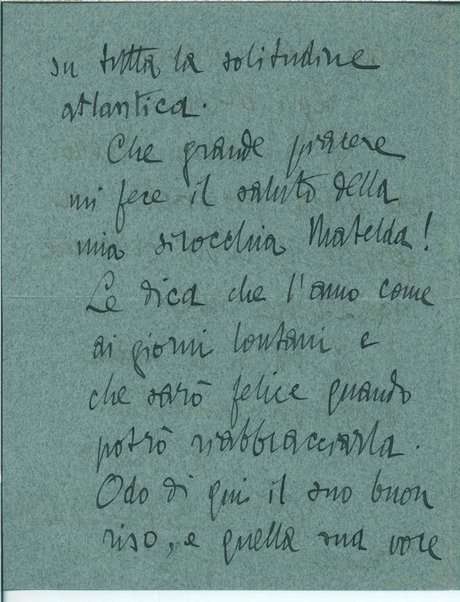 su tutta la solitudine
atlantica.
Che grande piacere
mi fece il saluto della
mia sirocchia Matelda!
Le dica che l'amo come
ai giorni lontani e
che sarò felice quando
potrò riabbracciarla.
Odo di qui il suo buon
riso, e quella sua voce